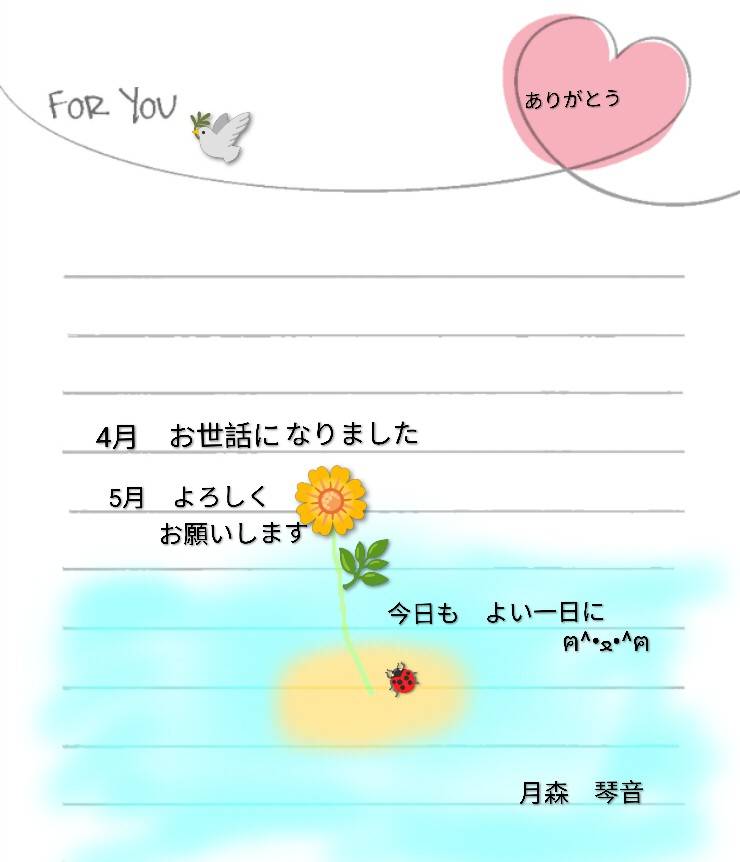 FOR YOU
ありがとう
4月　お世話になりました
5月　よろしく
お願いします
今日も　よい一日に
ฅ^•ﻌ•^ฅ
月森　琴音